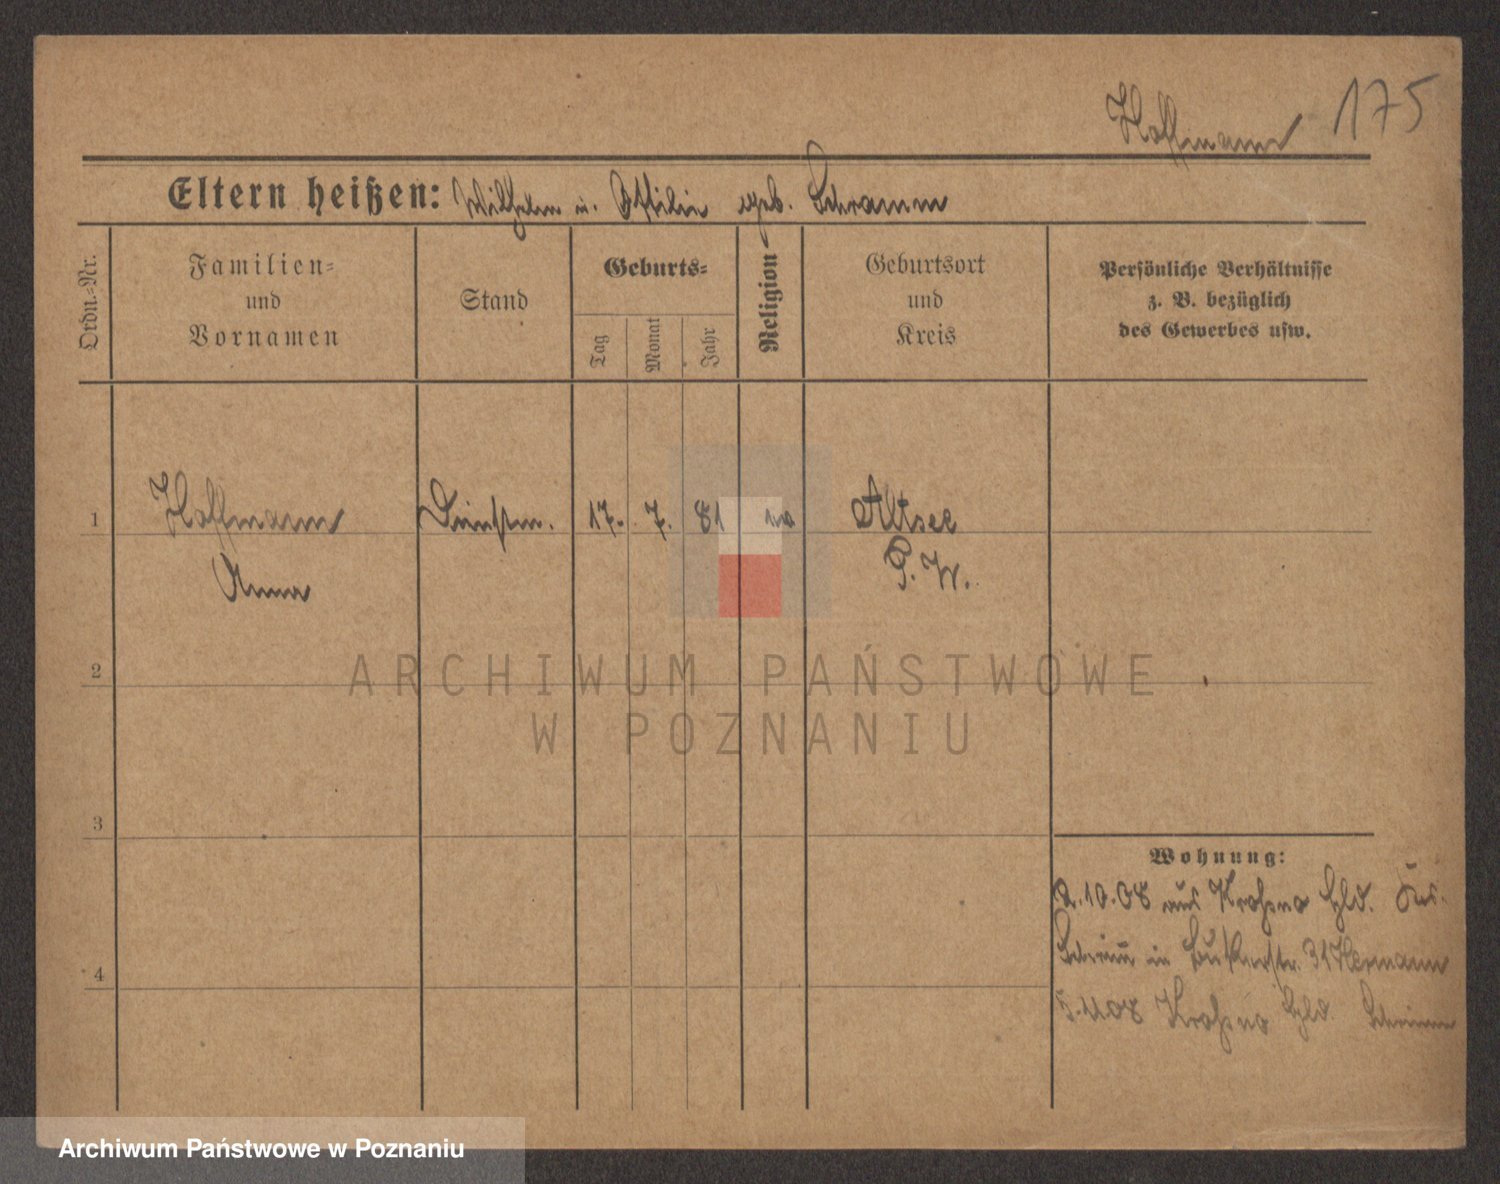 Hoffmann 175
Eltern heißen: Wilhelm u. Ottilie geb. Schramm
Ordn.-Nr.
Familien-
und
Vornamen
Stand
Geburts-
Tag
Monat
Jahr
Religion
Geburtsort
und
Kreis
Persönliche Verhältnisse
z. B. bezüglich
des Gewerbes usw.
1 Hoffmann Dienstm. 17. 7. 81 Altsee
Anna P. W.
2
ARCHIWUM PAŃSTWOWE
W POZNANIU
3
Wohnung:
2.10.08 aus
in 31 Hermann
4
Archiwum Państwowe w Poznaniu